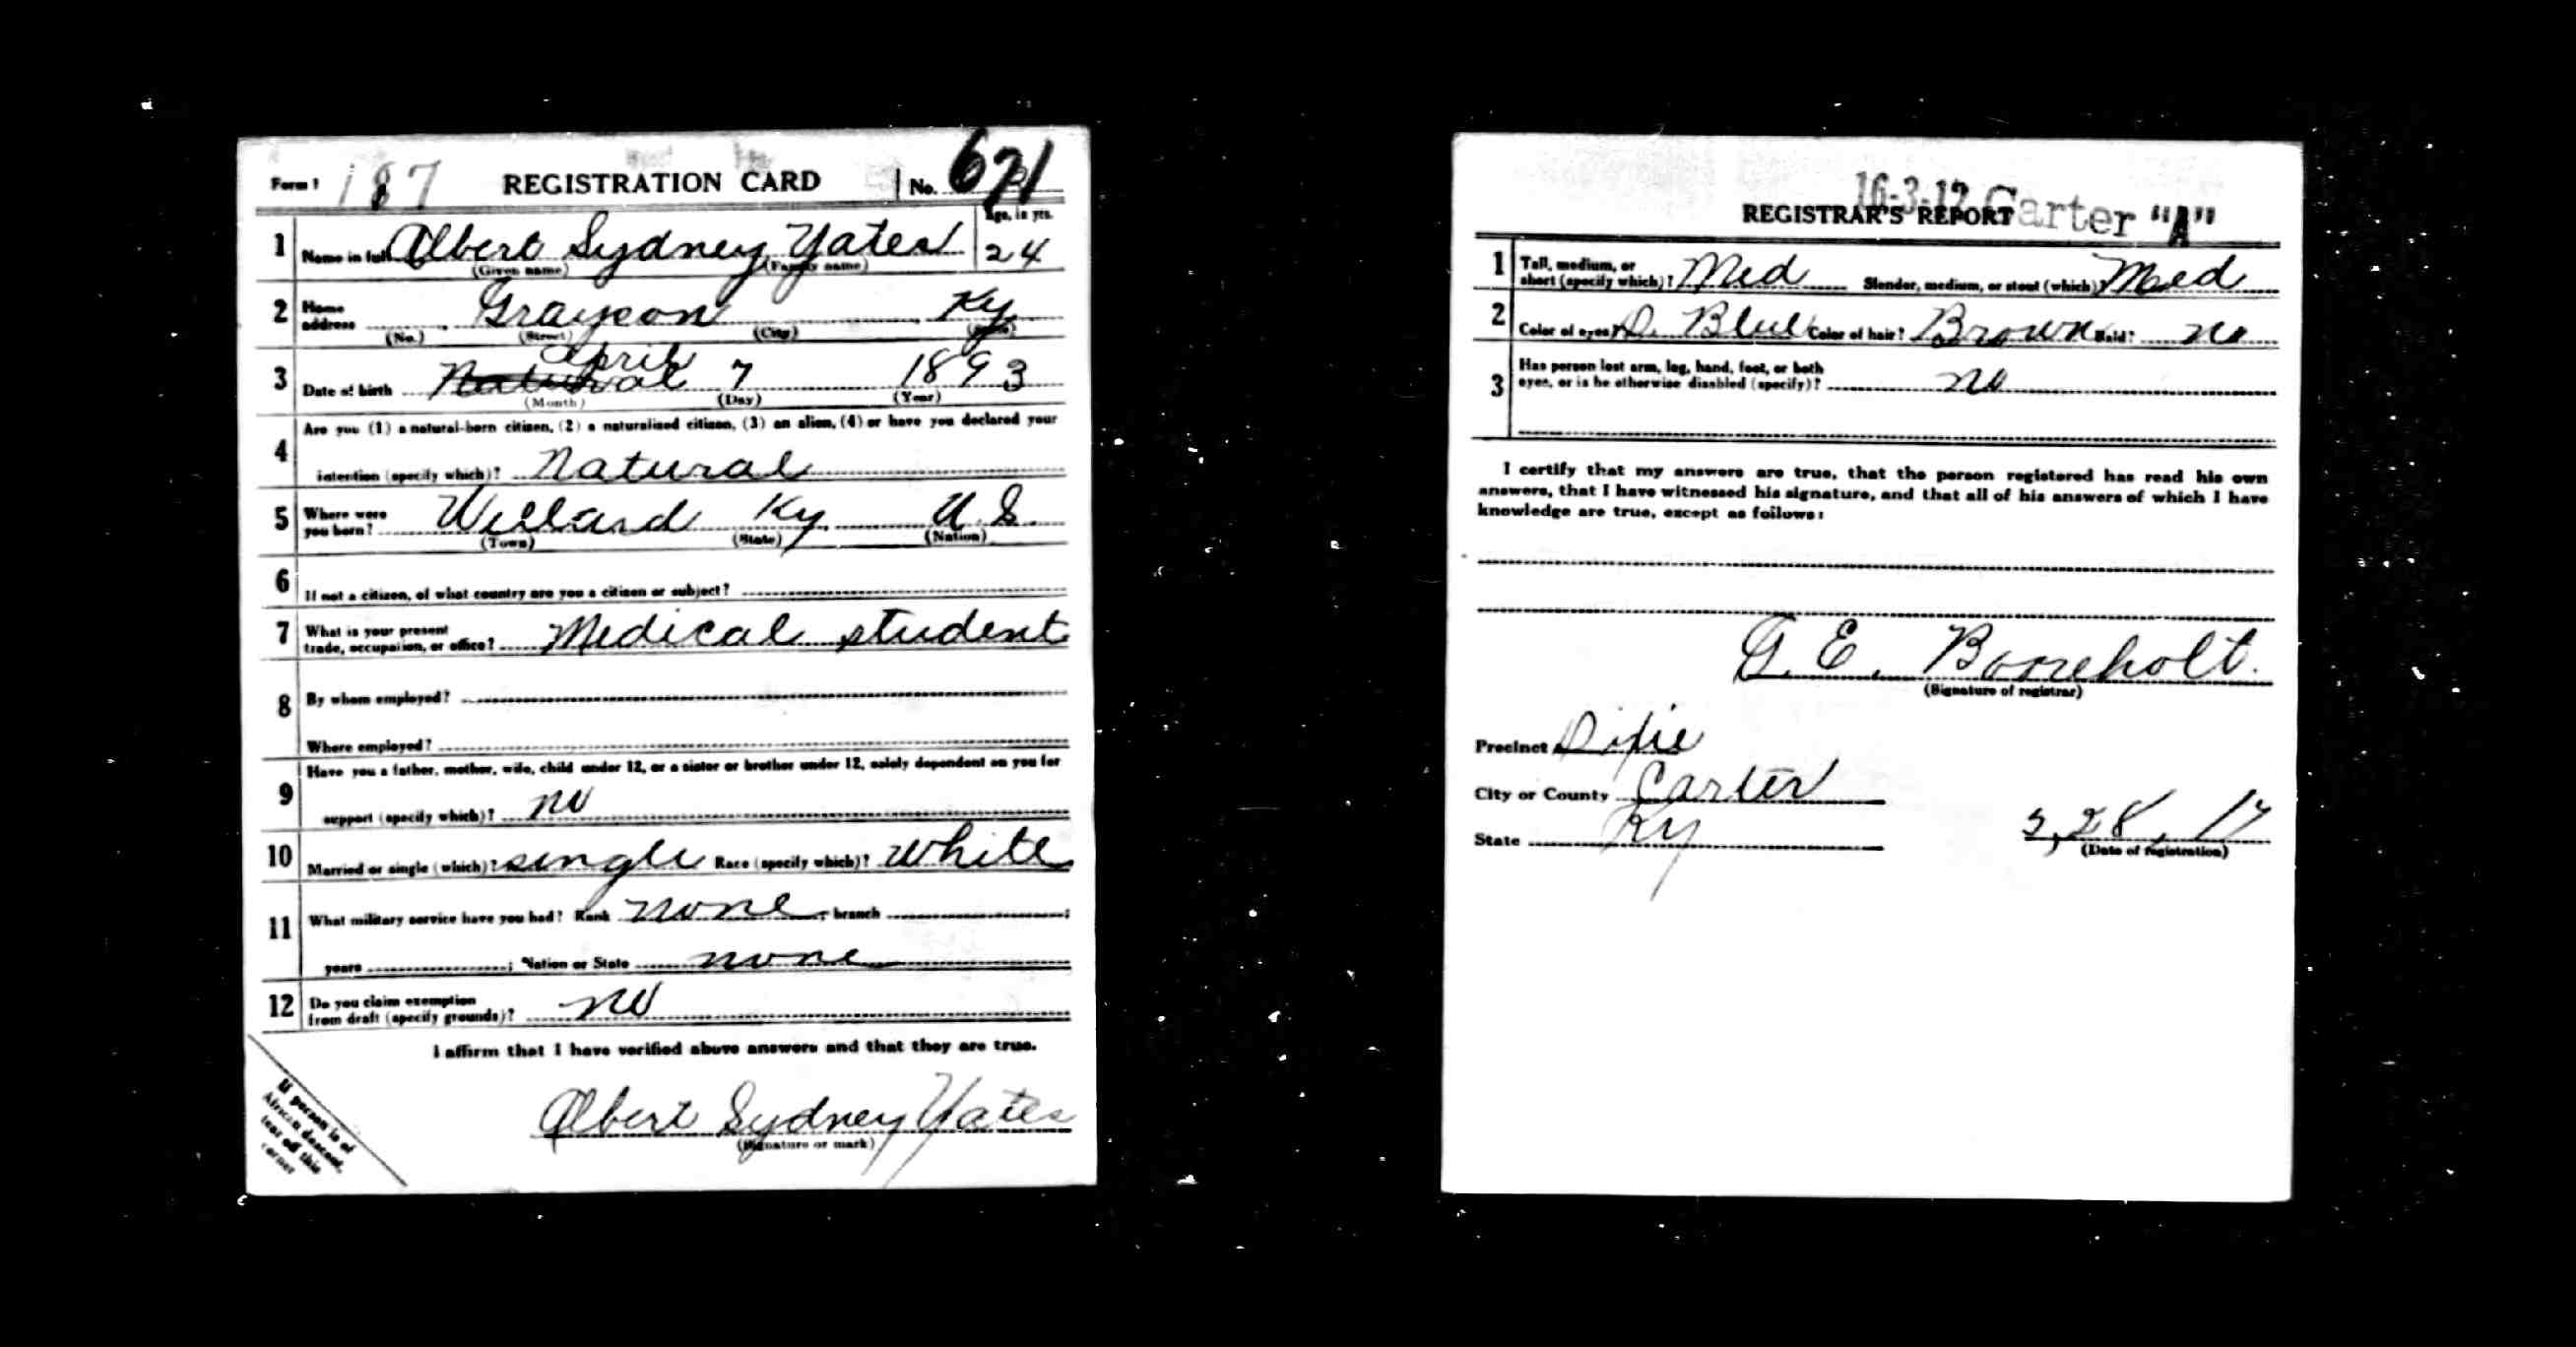 Form 1 187 REGISTRATION CARD No. 671
1 Name in full Albert Sydney Yates Age, in yrs.
(Given name) (Family name) 24
2 Home address Grayson Ky
(No.) (Street) (City) (State)
April
3 Date of birth Natural 7 1893
(Month) (Day) (Year)
4 Are you (1) a natural-born citizen, (2) a naturalized citizen, (3) an alien, (4) or have you declared your
intention (specify which)? Natural
5 Where were you born? Willard Ky U.S.
(Town) (State) (Nation)
6 If not a citizen, of what country are you a citizen or subject?
7 What is your present trade, occupation, or office? Medical student
8 By whom employed?
Where employed?
9 Have you a father, mother, wife, child under 12, or a sister or brother under 12, solely dependent on you for
support (specify which)? no
10 Married or single (which)? single Race (specify which)? white
11 What military service have you had? Rank none; branch ;
years ; Nation or State none
12 Do you claim exemption from draft (specify grounds)? no
I affirm that I have verified above answers and that they are true.
Albert Sydney Yates
(Signature or mark)
If person is of
African descent,
tear off this
corner
16-3-12 Carter "A"
REGISTRAR'S REPORT
1 Tall, medium, or short (specify which)? Med Slender, medium, or stout (which)? Med
2 Color of eyes? D. Blue Color of hair? Brown Bald? no
3 Has person lost arm, leg, hand, foot, or both
eyes, or is he otherwise disabled (specify)? no
I certify that my answers are true, that the person registered has read his own
answers, that I have witnessed his signature, and that all of his answers of which I have
knowledge are true, except as follows:
G. E. Boneholt.
(Signature of registrar)
Precinct Dixie
City or County Carter
State Ky 5, 28, 17
(Date of registration)